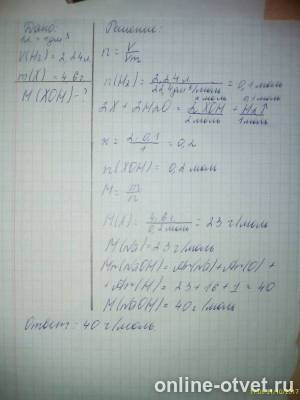 Дано:
1л = 1дм³
V(H₂) = 2,24л
m(X) = 4,6г
M(XOH) - ?
Решение:
n = V/Vm
n(H₂) = 2,24л / 22,4дм³/моль = 0,1 моль
2 моль 0,1 моль
2X + 2H₂O = 2XOH + H₂↑
2 моль 1 моль
x = 2·0,1 / 1 = 0,2
n(XOH) = 0,2 моль
M = m/n
M(X) = 4,6г / 0,2 моль = 23 г/моль
M(Na) = 23 г/моль
Mr(NaOH) = Ar(Na) + Ar(O) +
+ Ar(H) = 23 + 16 + 1 = 40
M(NaOH) = 40 г/моль
Ответ: 40 г/моль.
online-otvet.ru